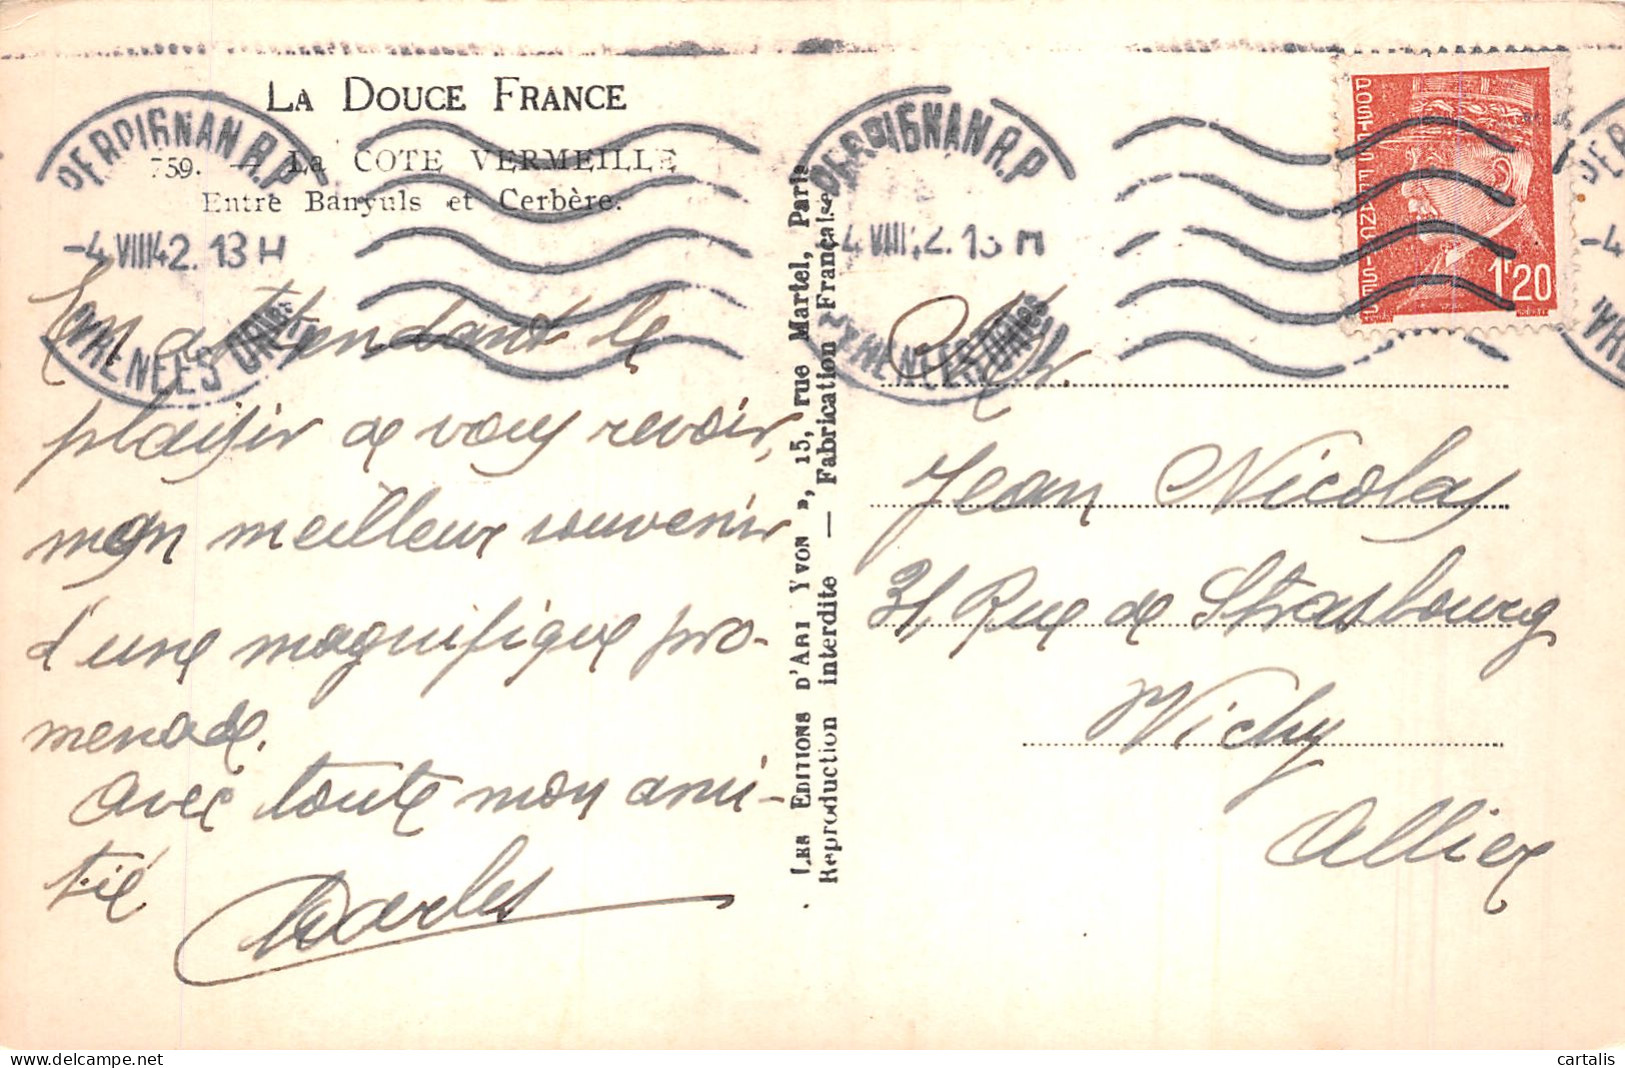 LA DOUCE FRANCE
759. — La COTE VERMEILLE
Entre Banyuls et Cerbère.
PERPIGNAN R.P
-4 VIII 42. 13 H
PYRENEES ORles
En attendant le
plaisir de vous revoir,
mon meilleur souvenir
d'une magnifique pro-
menade.
Avec toute mon ami-
tié
Charles
LES EDITIONS D'ART YVON », 15, rue Martel, Paris
Reproduction interdite — Fabrication Française
PERPIGNAN R.P
4 VIII 42. 13 H
PYRENEES ORles
POSTES FRANÇAISES
1f20
Mr.
Jean Nicolas
31 Rue de Strasbourg
Vichy
Allier
PER
-4
cartalis